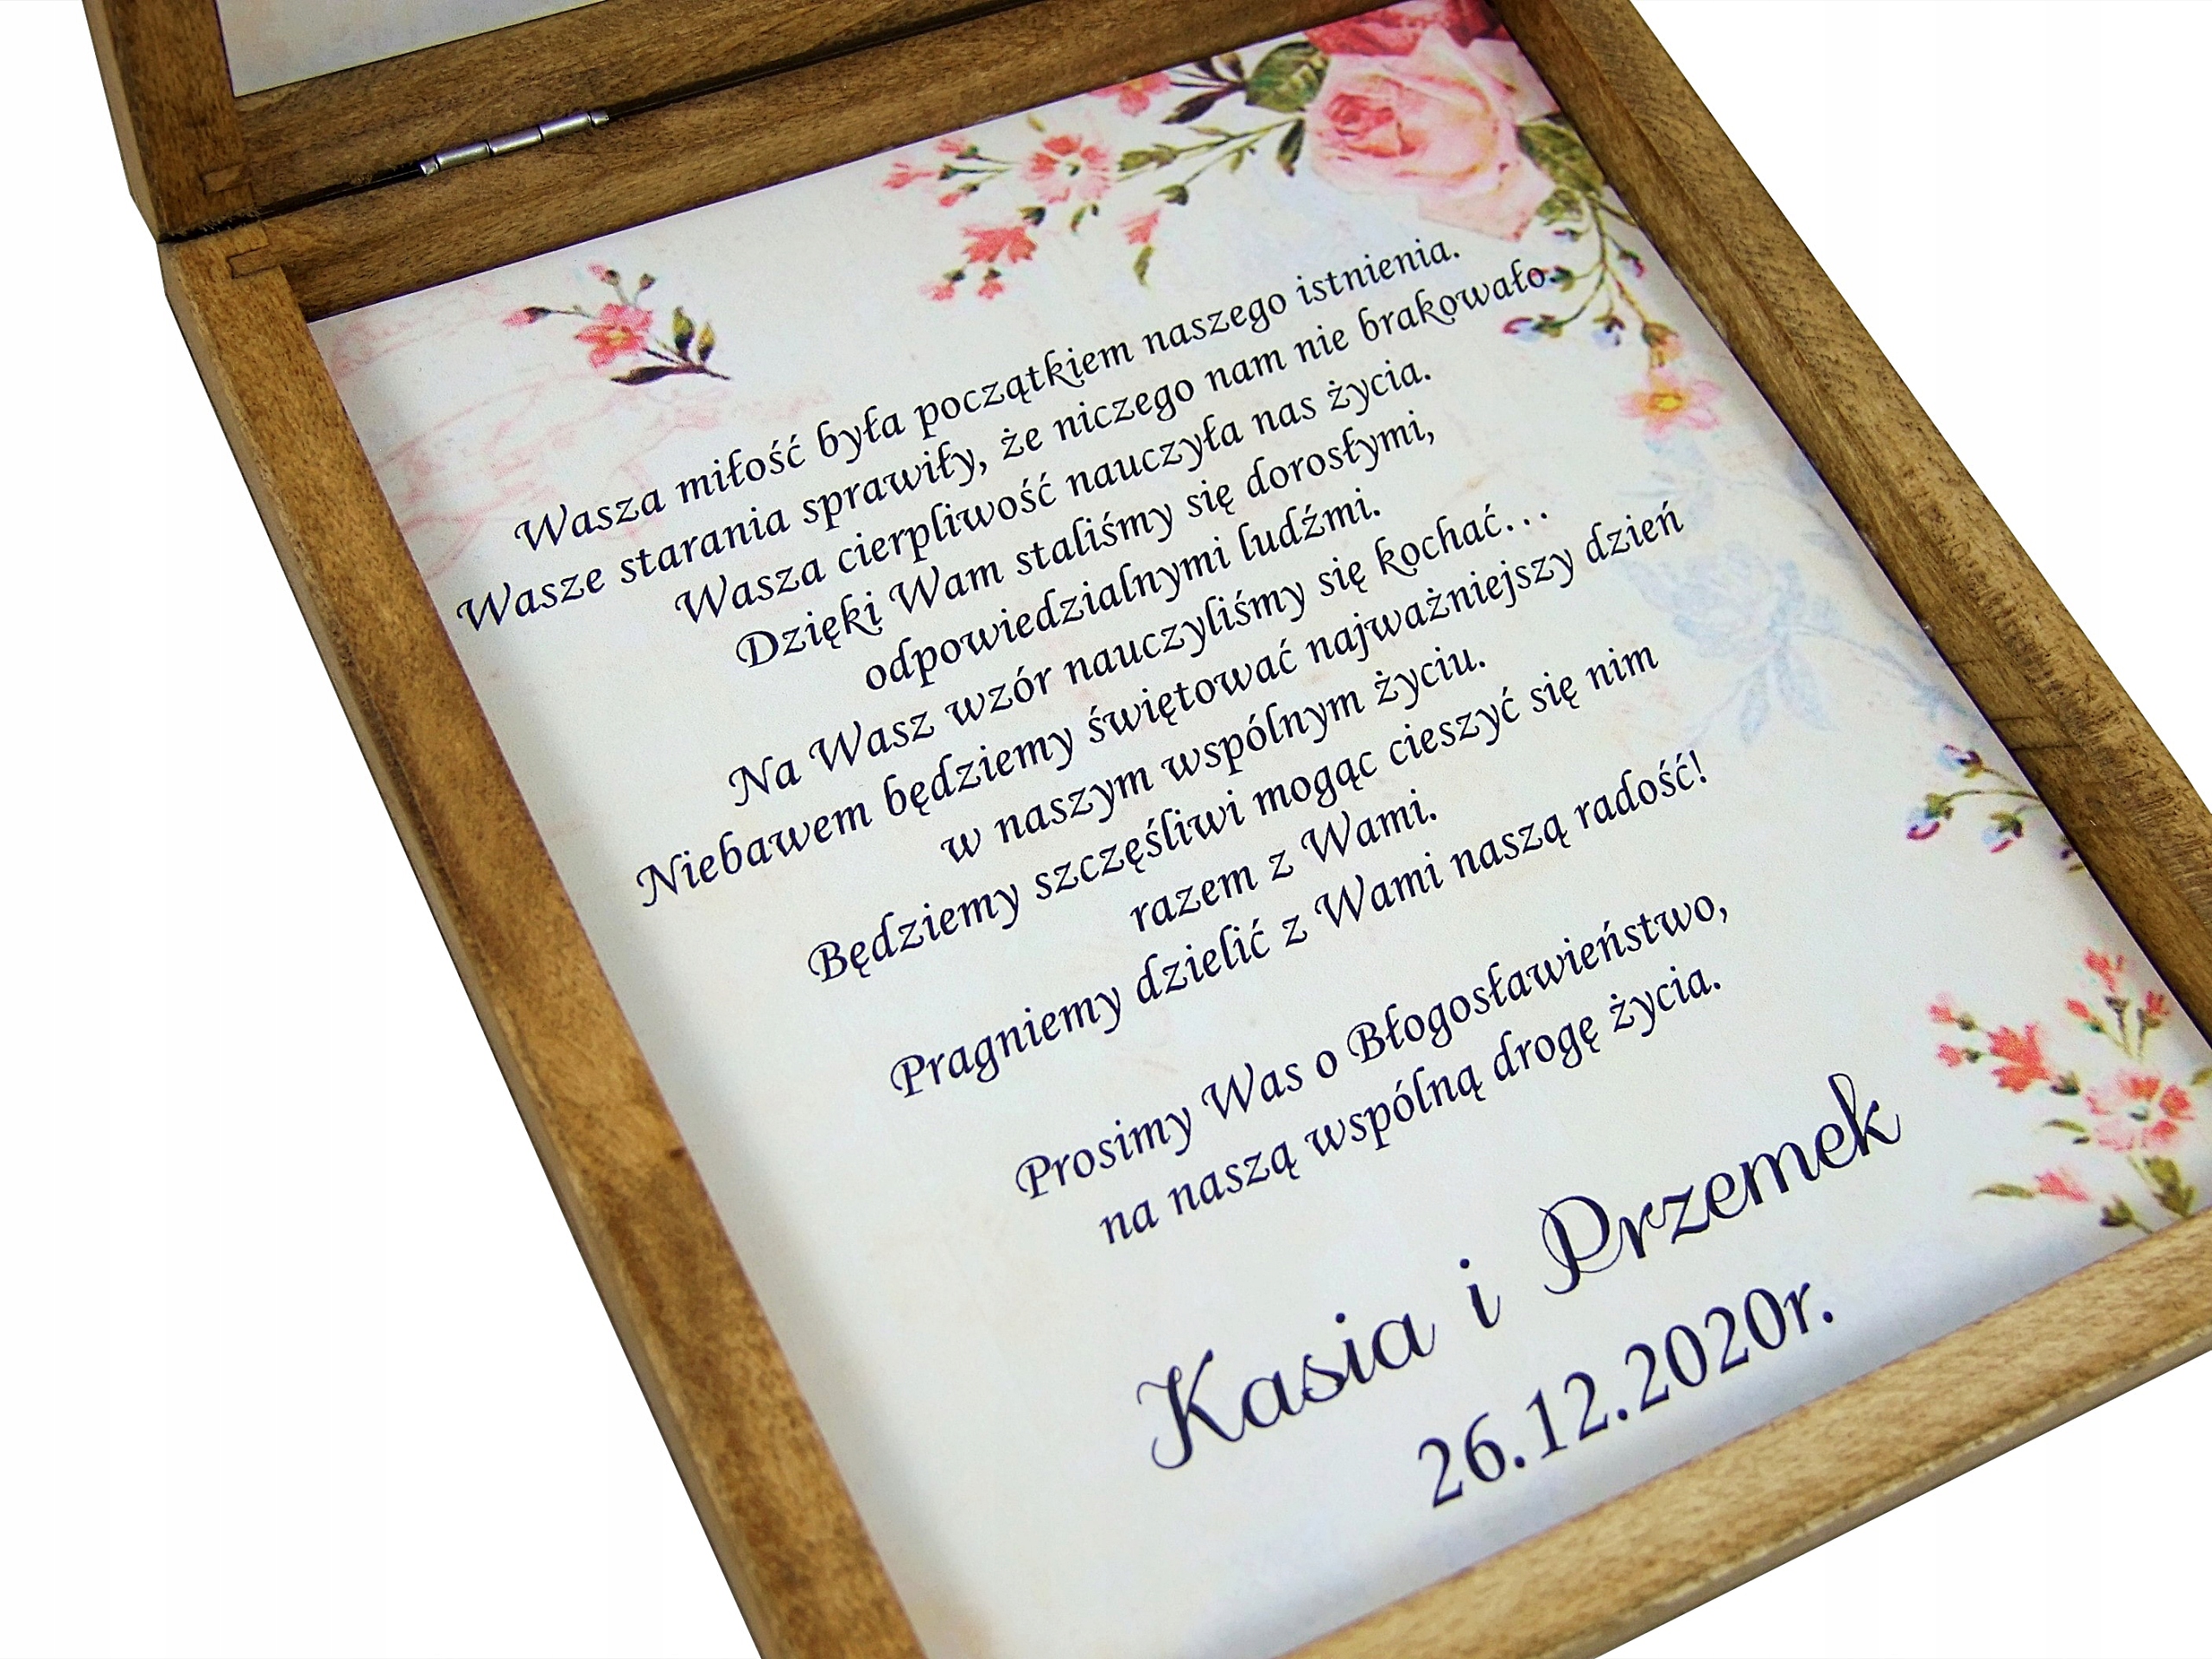 Wasza miłość była początkiem naszego istnienia.
Wasze starania sprawiły, że niczego nam nie brakowało.
Wasza cierpliwość nauczyła nas życia.
Dzięki Wam staliśmy się dorosłymi,
odpowiedzialnymi ludźmi.
Na Wasz wzór nauczyliśmy się kochać…
Niebawem będziemy świętować najważniejszy dzień
w naszym wspólnym życiu.
Będziemy szczęśliwi mogąc cieszyć się nim
razem z Wami.
Pragniemy dzielić z Wami naszą radość!
Prosimy Was o Błogosławieństwo,
na naszą wspólną drogę życia.
Kasia i Przemek
26.12.2020r.